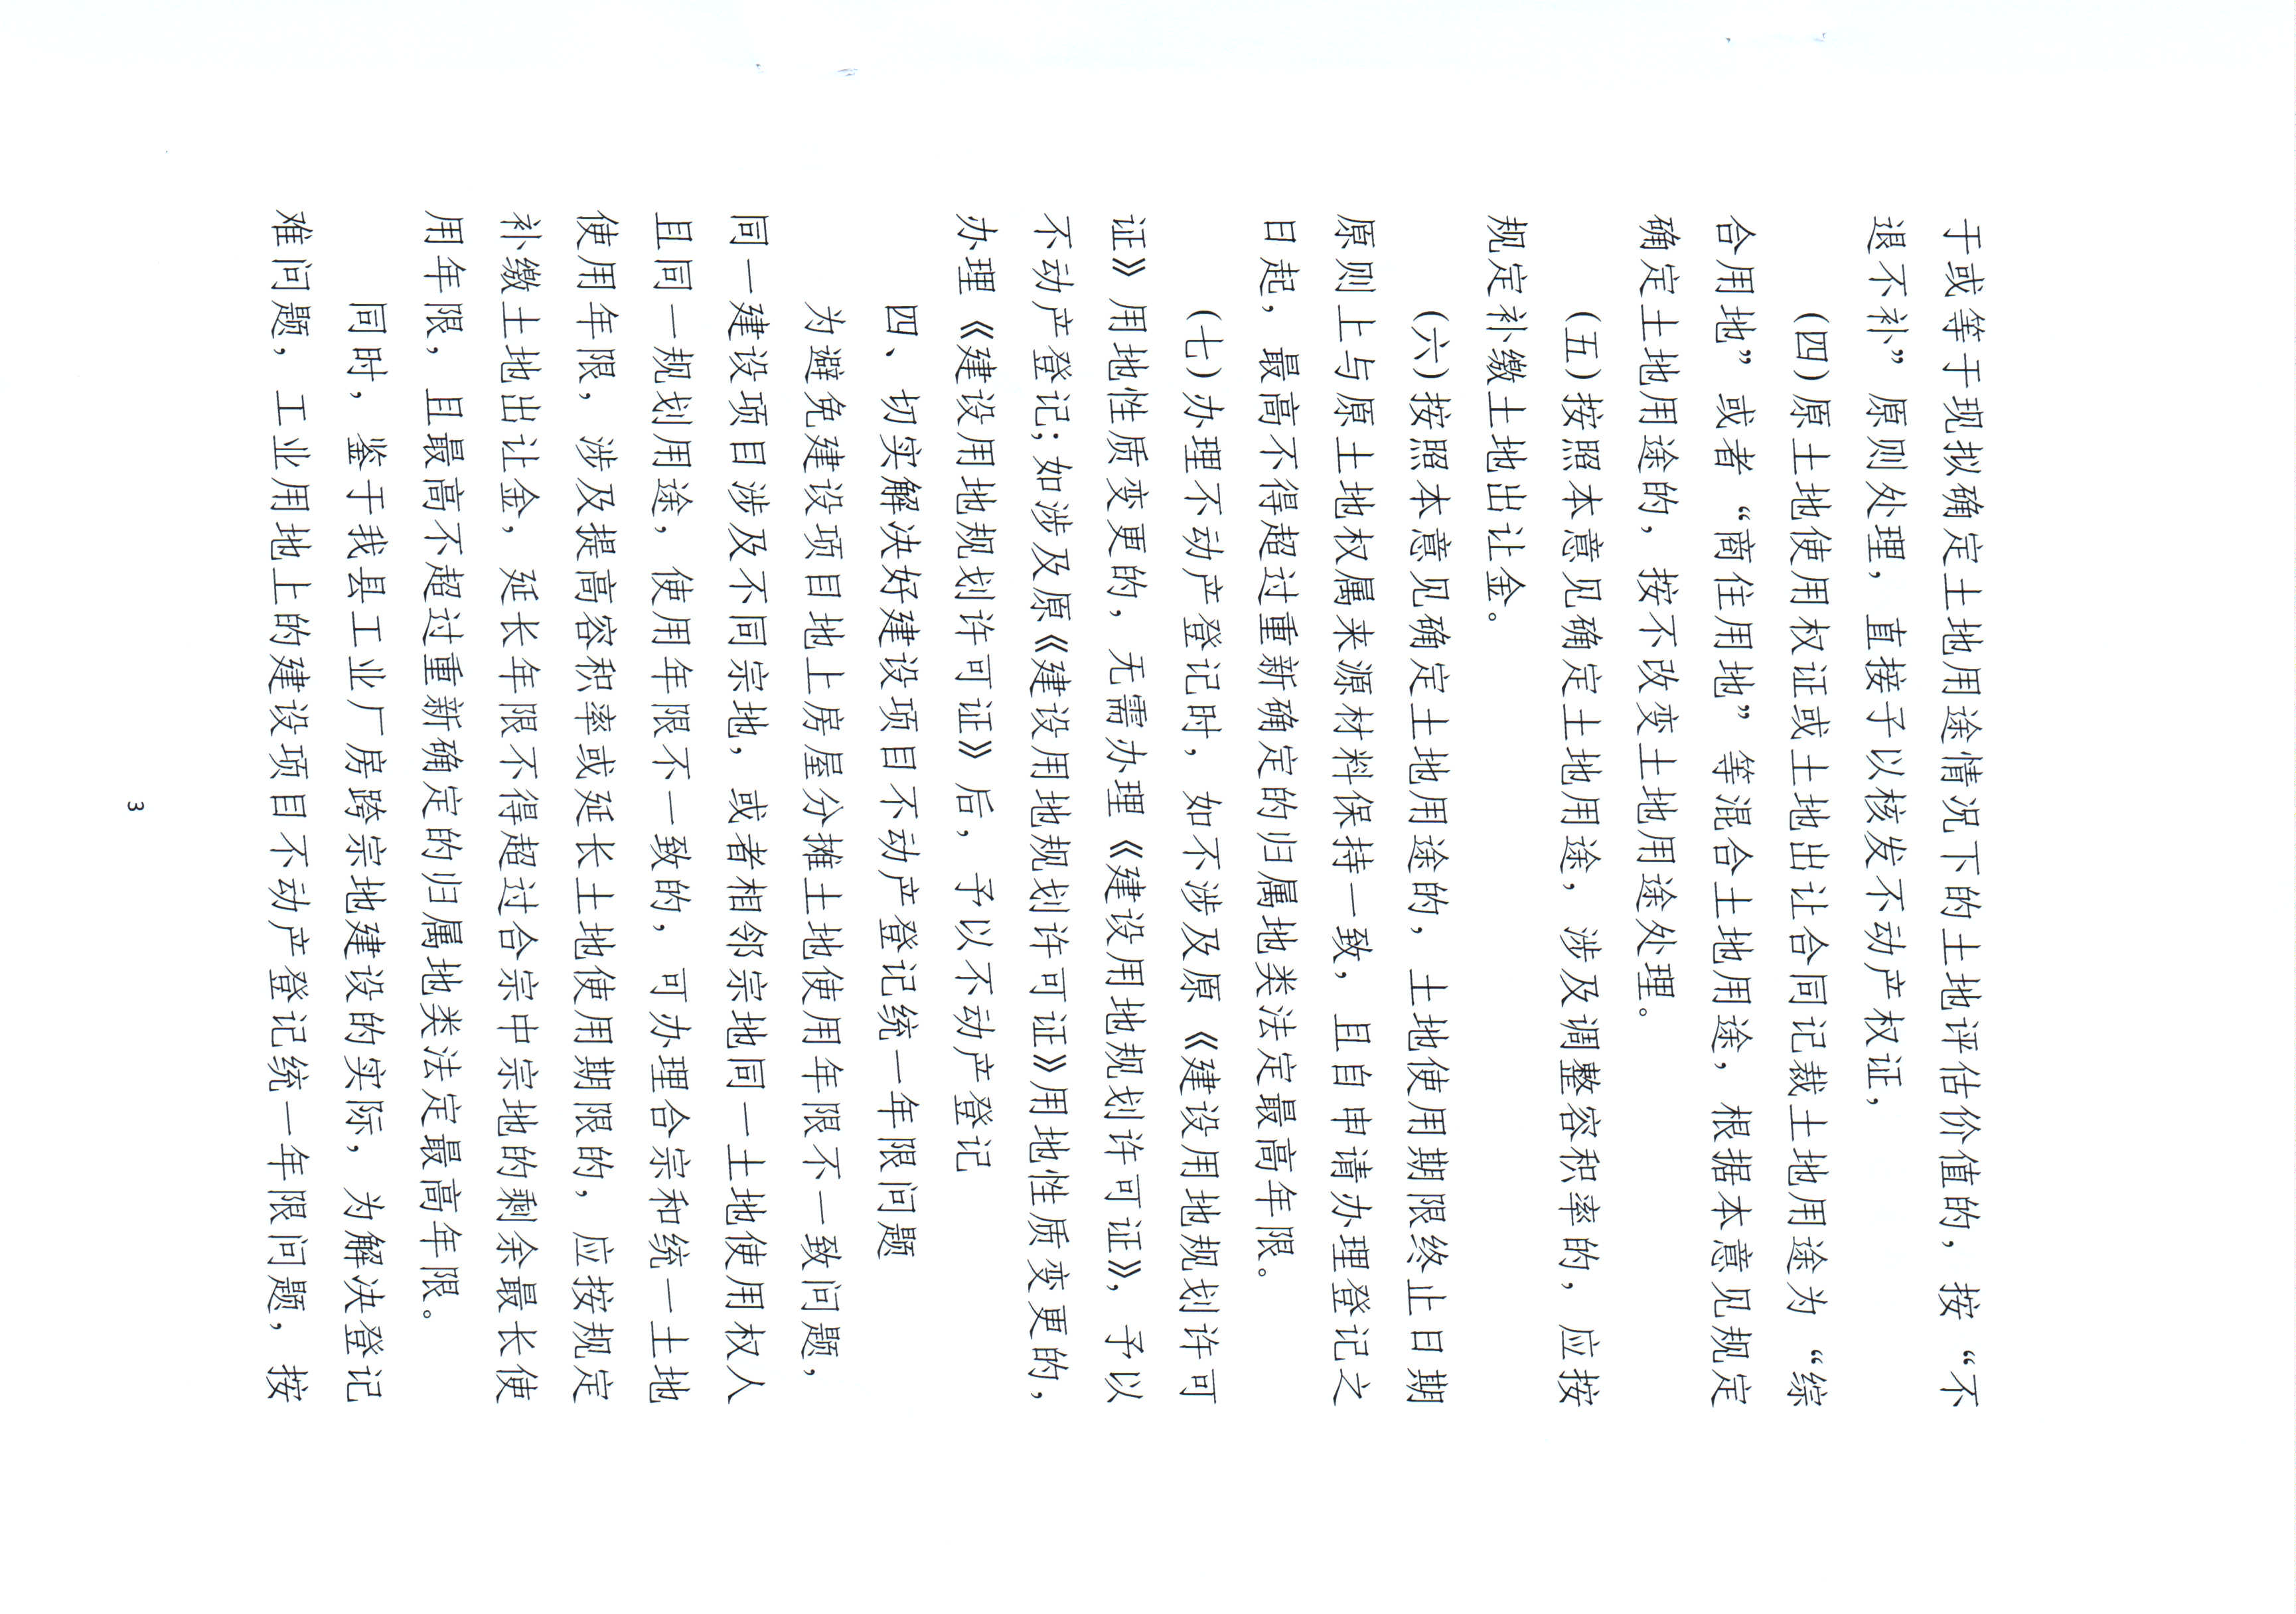 于或等于现拟确定土地用途情况下的土地评估价值的，按“不
退不补”原则处理，直接予以核发不动产权证，
（四）原土地使用权证或土地出让合同记裁土地用途为“综
合用地”或者“商住用地”等混合土地用途，根据本意见规定
确定土地用途的，按不改变土地用途处理。
（五）按照本意见确定土地用途，涉及调整容积率的，应按
规定补缴土地出让金。
（六）按照本意见确定土地用途的，土地使用期限终止日期
原则上与原土地权属来源材料保持一致，且自申请办理登记之
日起，最高不得超过重新确定的归属地类法定最高年限。
（七）办理不动产登记时，如不涉及原《建设用地规划许可
证》用地性质变更的，无需办理《建设用地规划许可证》，予以
不动产登记；如涉及原《建设用地规划许可证》用地性质变更的，
办理《建设用地规划许可证》后，予以不动产登记
四、切实解决好建设项目不动产登记统一年限问题
为避免建设项目地上房屋分摊土地使用年限不一致问题，
同一建设项目涉及不同宗地，或者相邻宗地同一土地使用权人
且同一规划用途，使用年限不一致的，可办理合宗和统一土地
使用年限，涉及提高容积率或延长土地使用期限的，应按规定
补缴土地出让金，延长年限不得超过合宗中宗地的剩余最长使
用年限，且最高不超过重新确定的归属地类法定最高年限。
同时，鉴于我县工业厂房跨宗地建设的实际，为解决登记
难问题，工业用地上的建设项目不动产登记统一年限问题，按
3